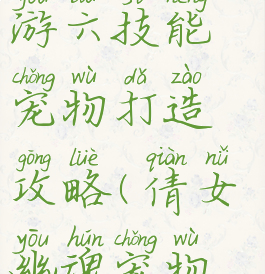 yóu liù jì néng
游六技能
chǒng wù dǎ zào
宠物打造
gōng lüè qiàn nǚ
攻略(倩女
yōu hún chǒng wù
幽魂宠物